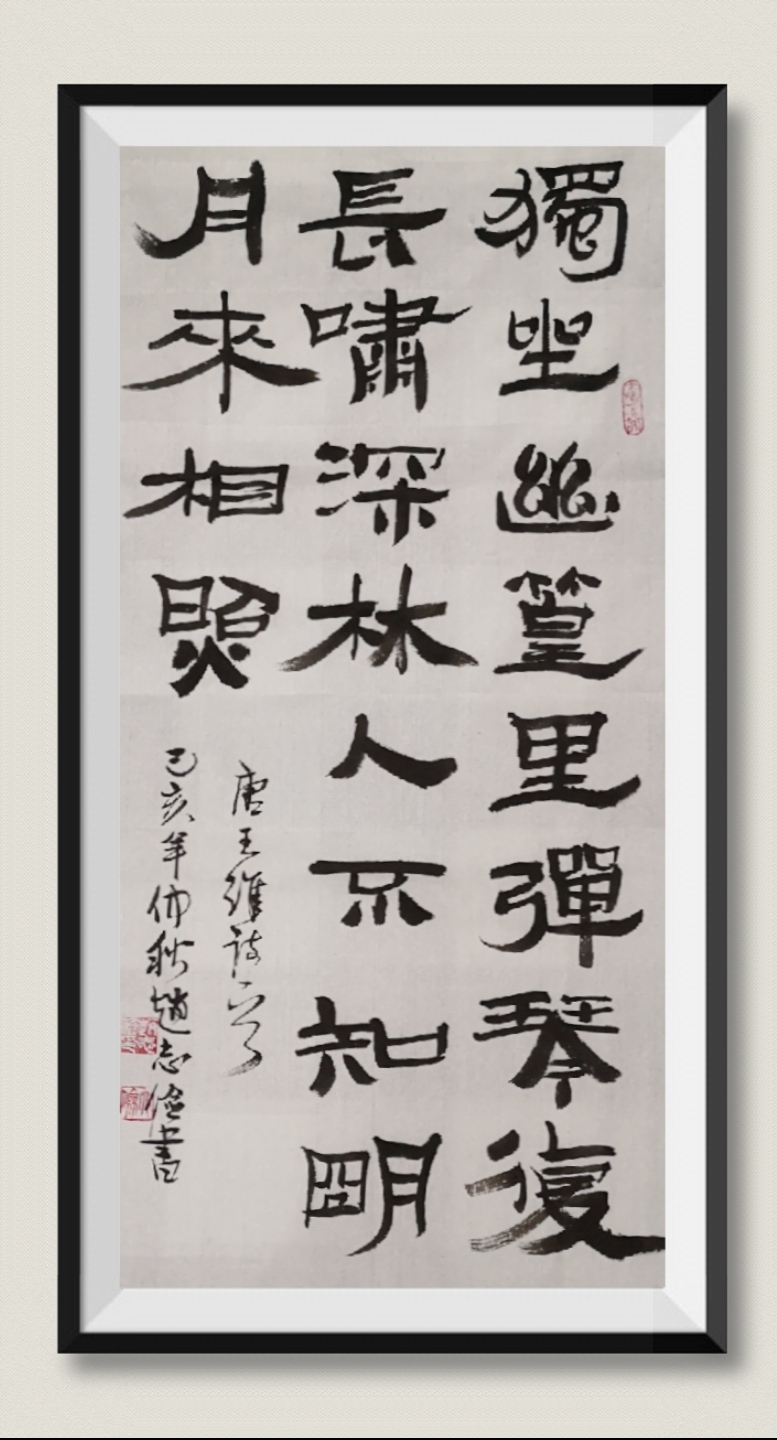 獨坐幽篁里彈琴復
長嘯深林人不知明
月來相照
唐王維詩一首
己亥年仲秋趙志俭書